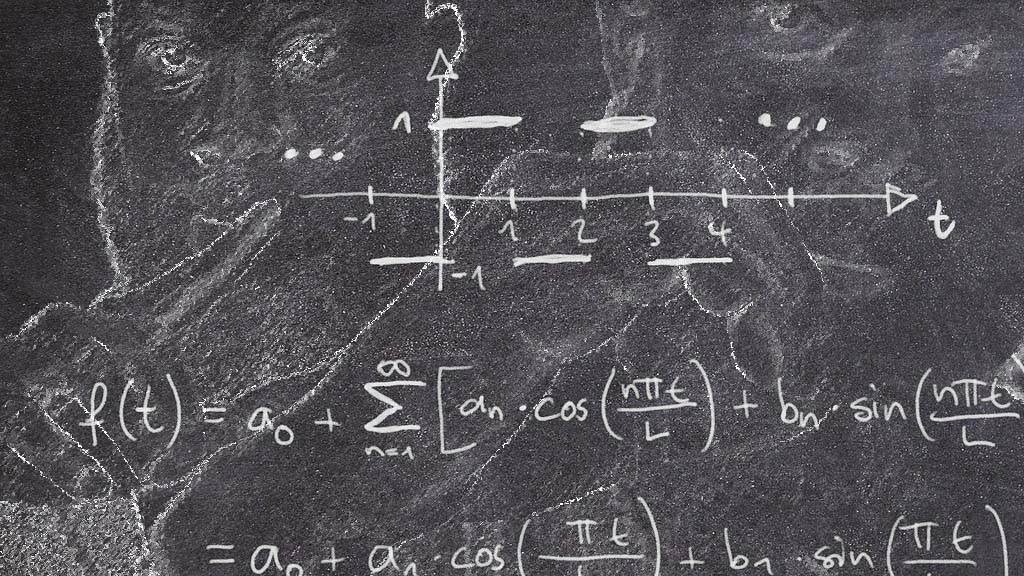 1
... ...
-1 1 2 3 4 t
-1
f(t) = a₀ + ∑ₙ₌₁^∞ [aₙ · cos(nπt/L) + bₙ · sin(nπt/L
= a₀ + a₁ · cos(πt/ ) + b₁ · sin(πt/ )